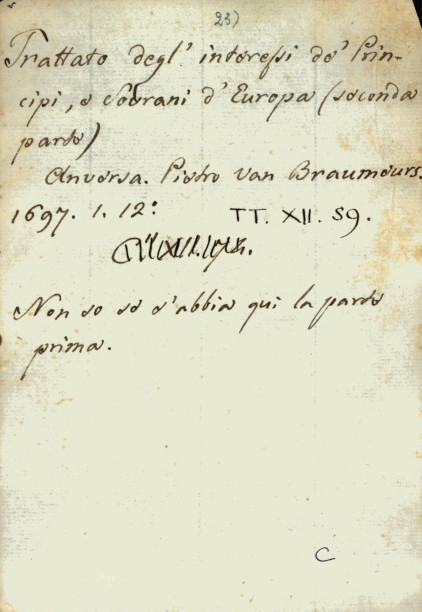 23)
Trattato degl' interessi de' Prin-
cipi, e Sovrani d'Europa (seconda
parte)
Anversa. Pietro van Braumeurs.
1697. 1. 12:
TT. XII. 59.
Non so se s'abbia qui la parte
prima.
C